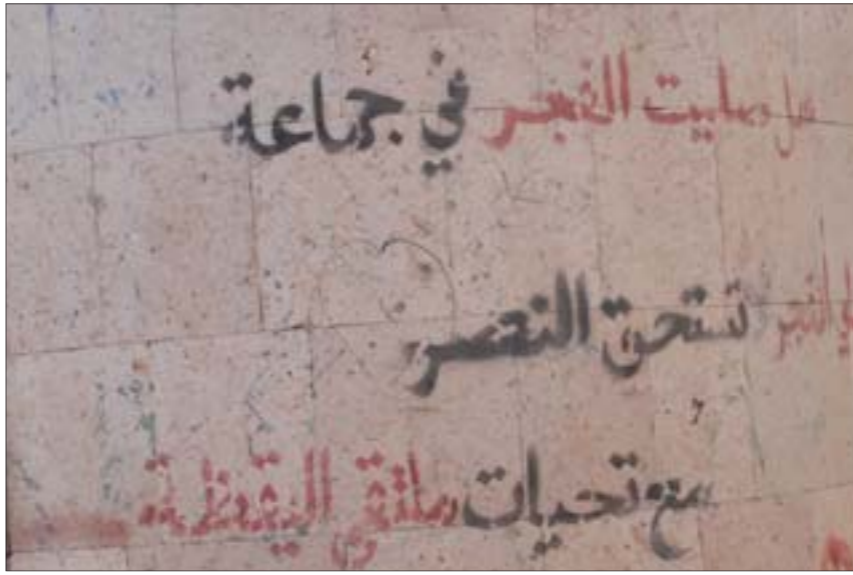 هل صليت الفجر في جماعة
الفجر تستحق النصر
مع تحيات ملتقى اليقظة